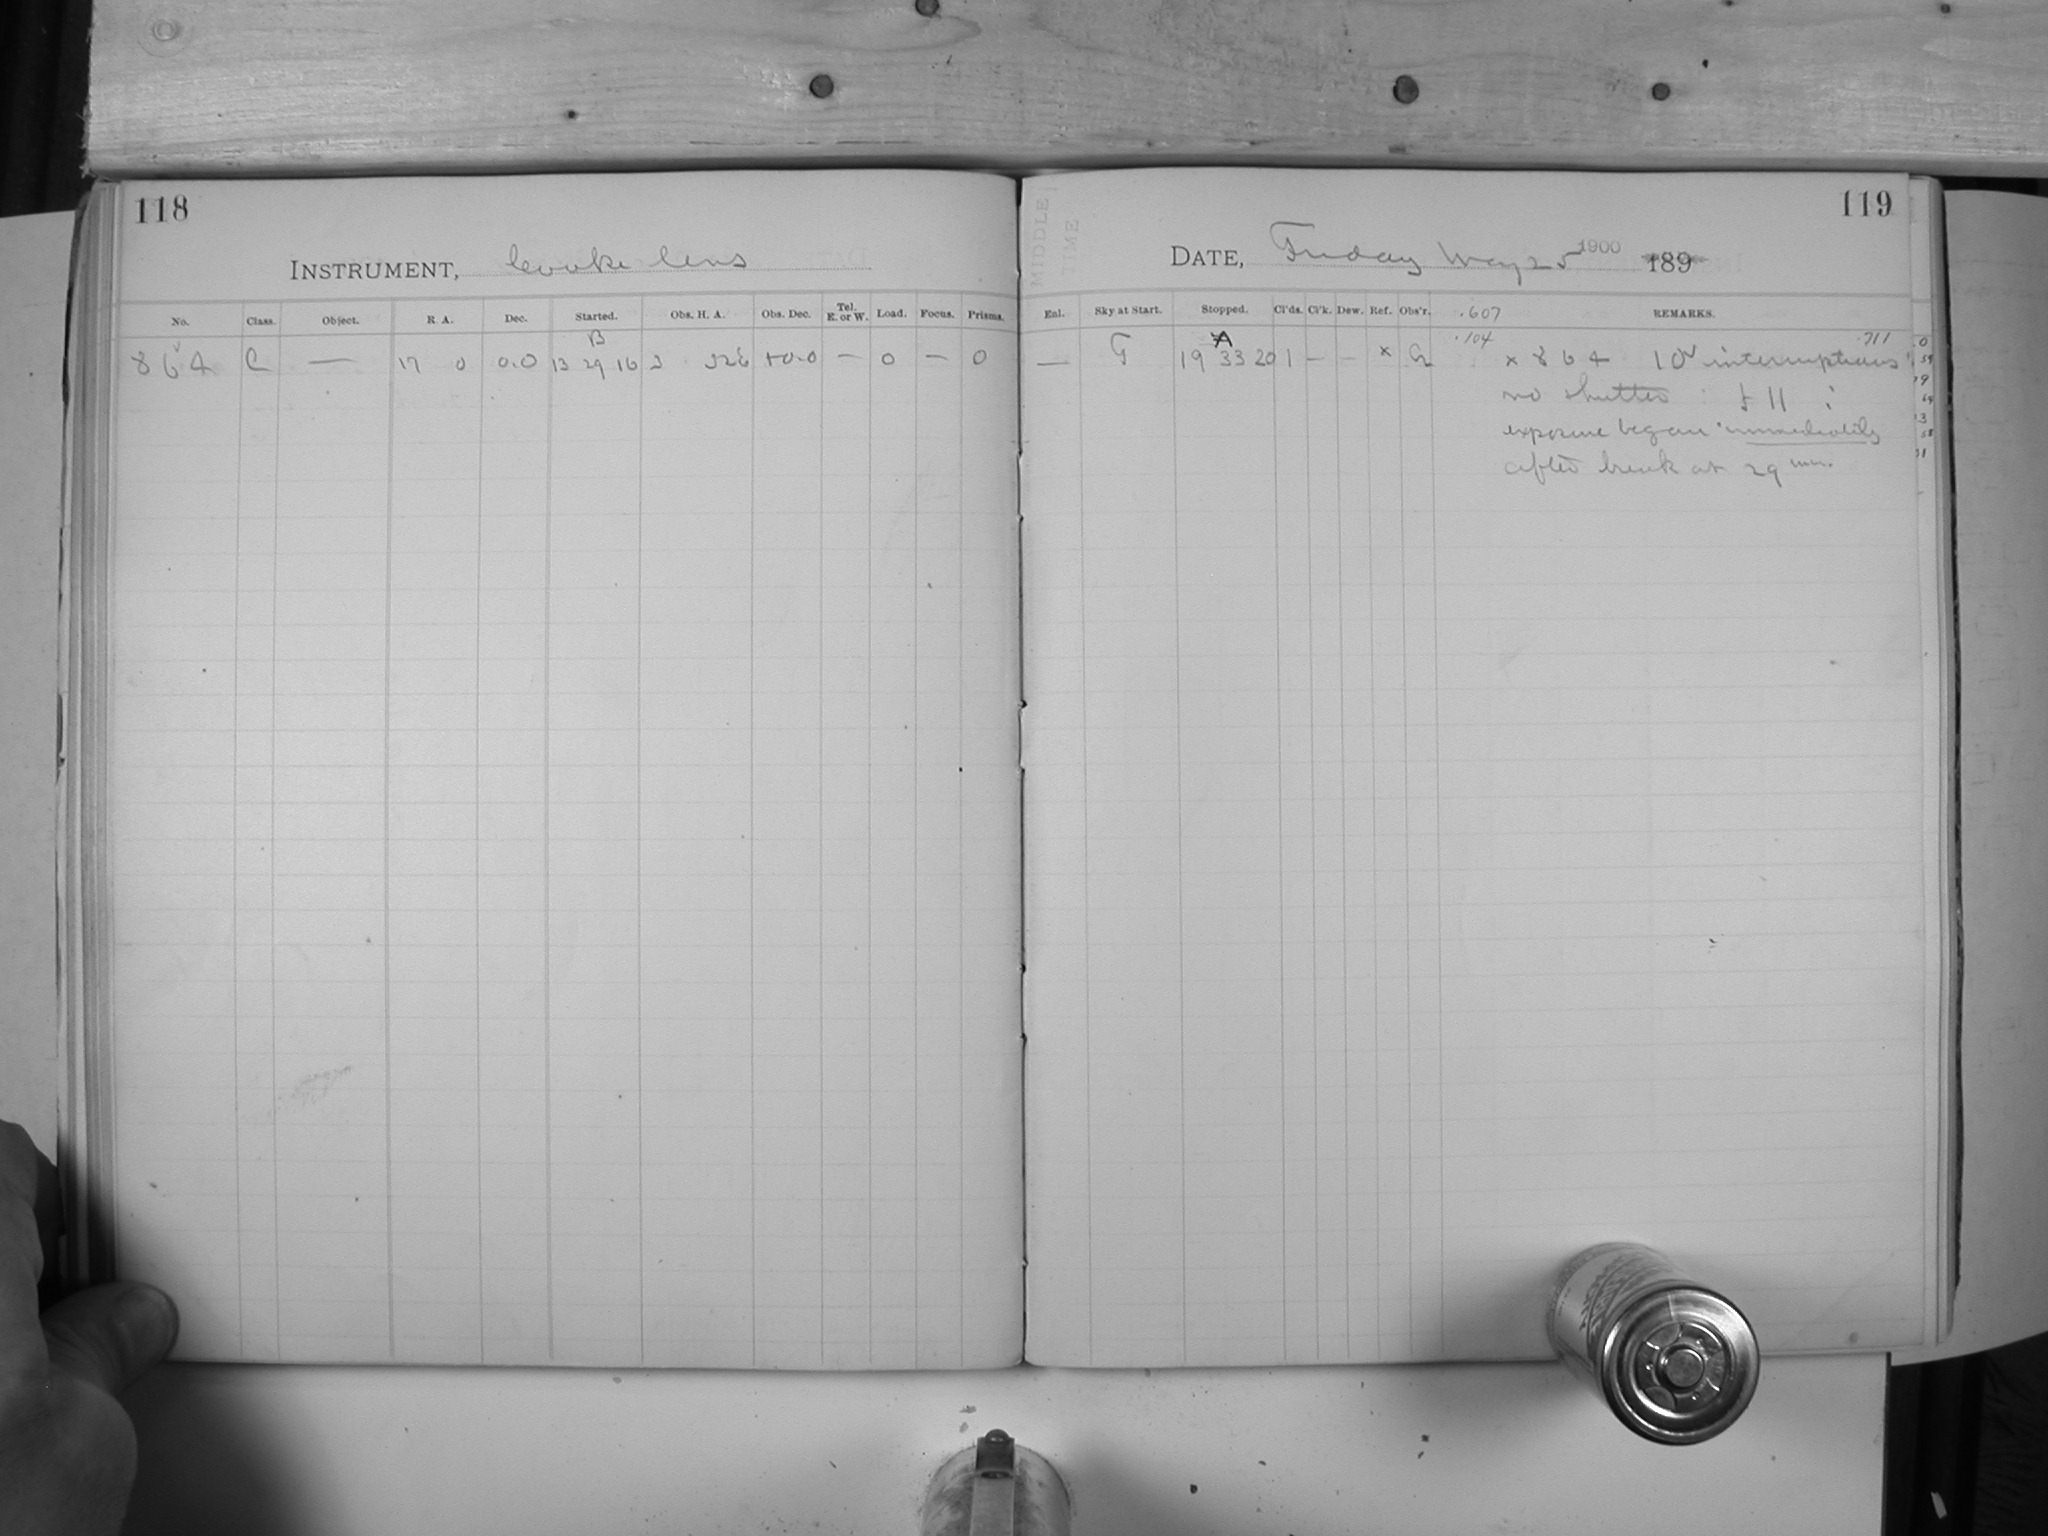 118
INSTRUMENT, Cooke lens
No. Class. Object. R. A. Dec. Started. Obs. H. A. Obs. Dec. Tel. E. or W. Load. Focus. Prisms.
B
864 C — 17 0 0.0 13 29 16 3 32E +0.0 — 0 — 0
119
MIDDLE TIME
DATE, Friday May 25 1900 189
Enl. Sky at Start. Stopped. Cl'ds. Cl'k. Dew. Ref. Obs'r. .607 REMARKS.
A .104 .711
— G 19 33 20 1 — — x G x 864 10 interruptions
no shutter : f 11 :
exposure began immediately
after break at 29 min.